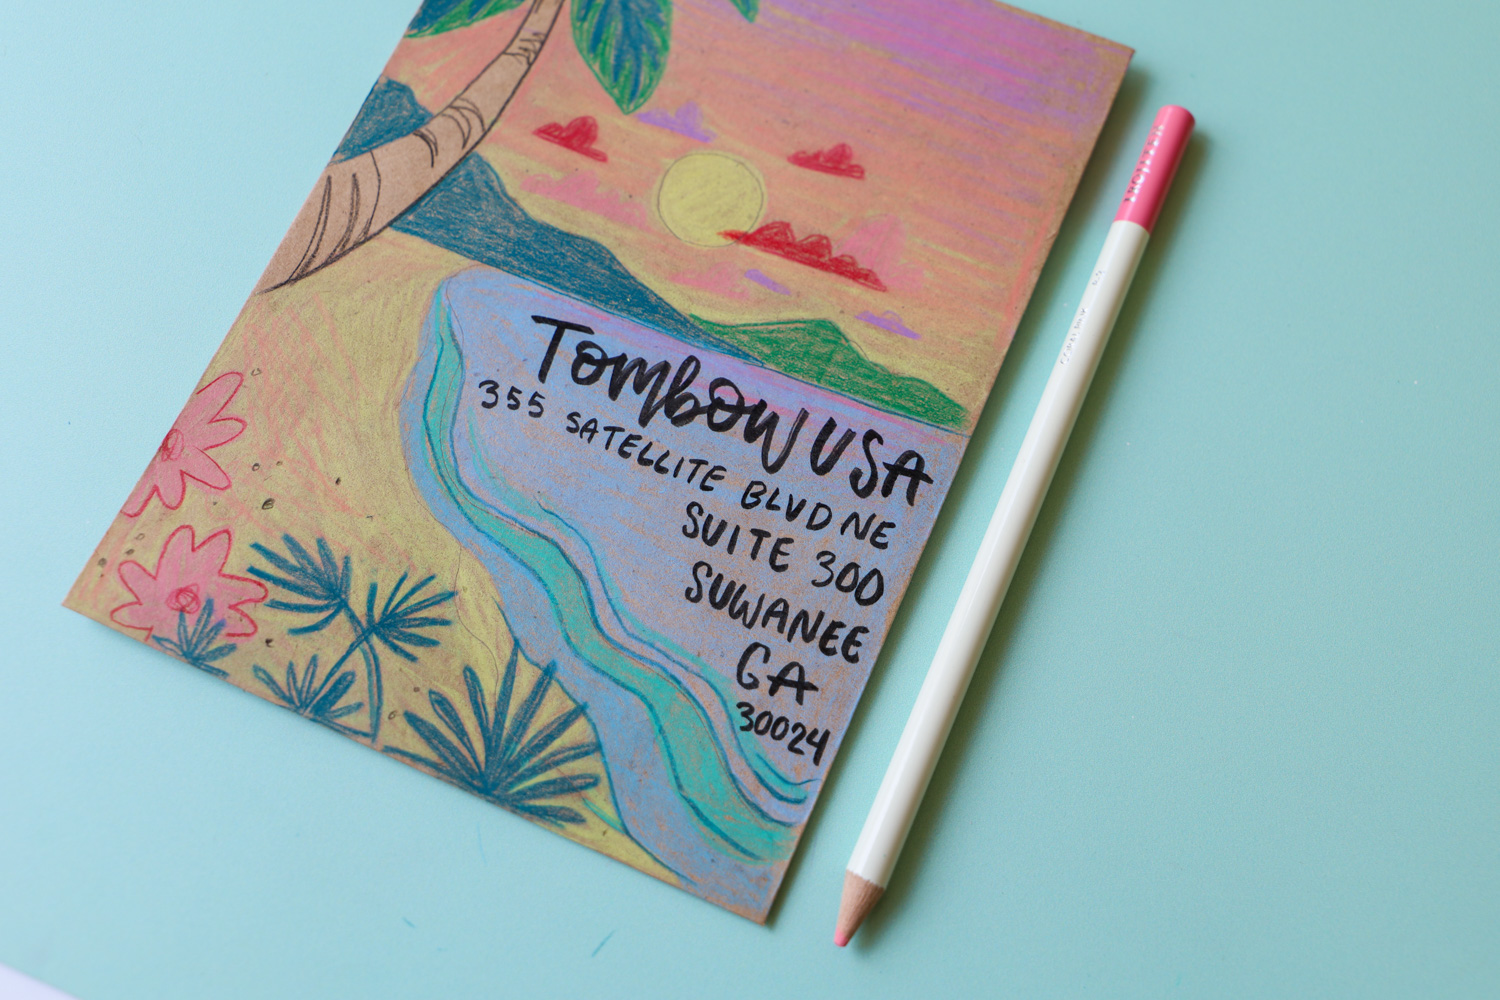 Tombow USA
355 SATELLITE BLVD NE
SUITE 300
SUWANEE
GA
30024